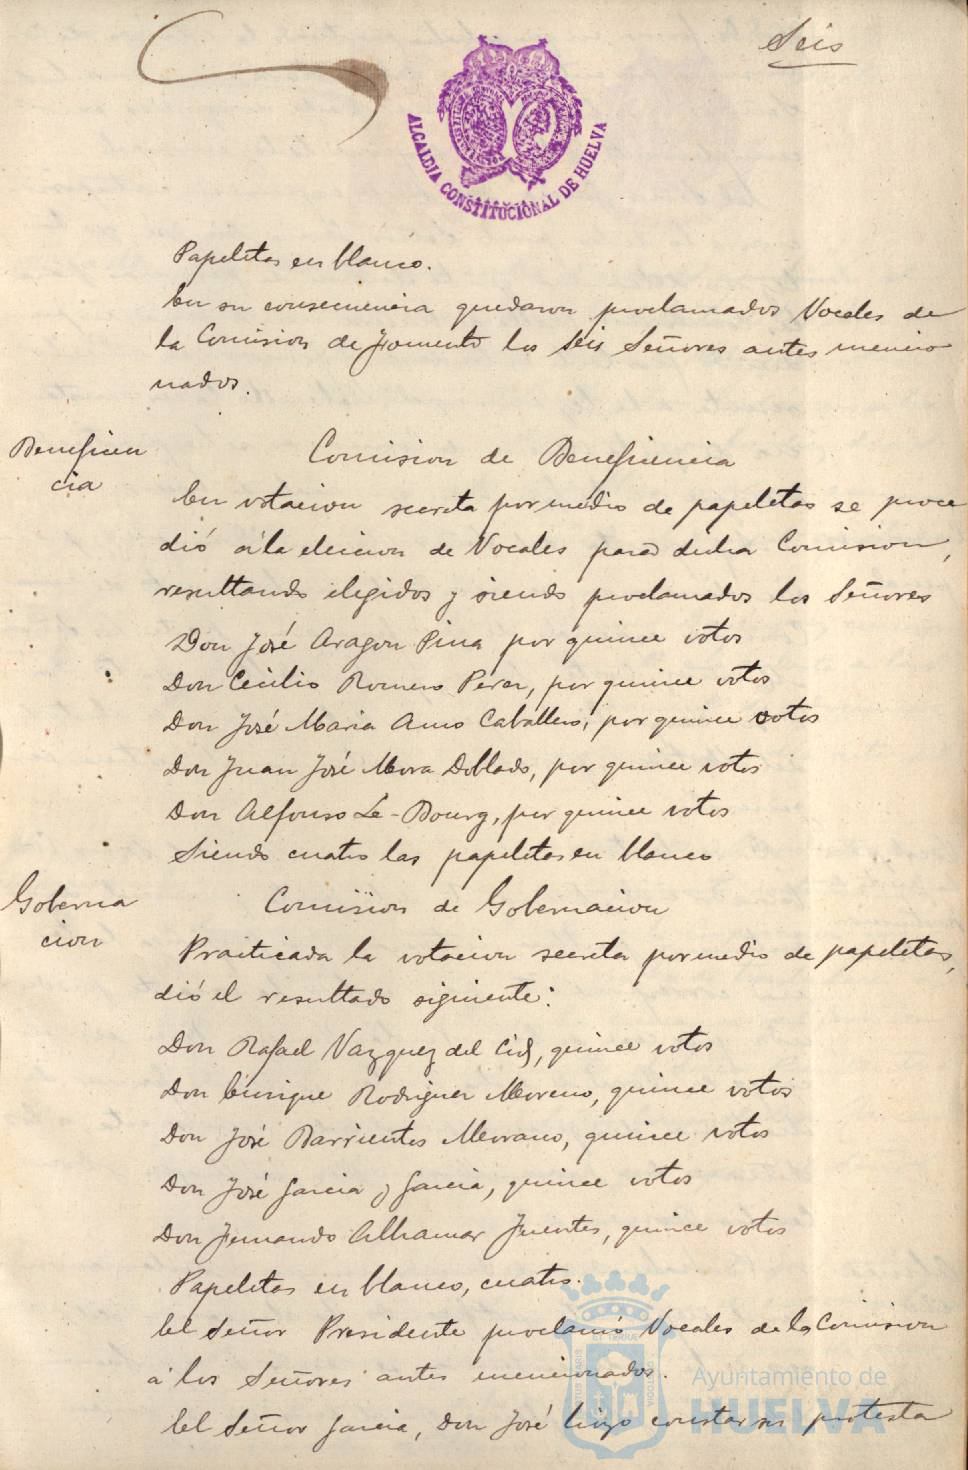 Seis
ALCALDIA CONSTITUCIONAL DE HUELVA
Papeletas en blanco.
En su consecuencia quedaron proclamados Vocales de
la Comision de Fomento los seis Señores antes mencio
nados.
Beneficen
cia
Comision de Beneficencia
En votacion secreta por medio de papeletas se proce
dió á la eleccion de Vocales para dicha Comision,
resultando elegidos y siendo proclamados los Señores
Don José Aragon Pina por quince votos
Don Cecilio Romero Perez, por quince votos
Don José Maria Amo Caballero, por quince votos
Don Juan José Mora Doblado, por quince votos
Don Alfonso Le-Bourg, por quince votos
Siendo cuatro las papeletas en blanco
Goberna
cion
Comision de Gobernacion
Practicada la votacion secreta por medio de papeletas,
dió el resultado siguiente:
Don Rafael Vazquez del Cid, quince votos
Don Enrique Rodriguez Moreno, quince votos
Don José Barrientos Morano, quince votos
Don José Garcia y Garcia, quince votos
Don Fernando Alhamar Fuentes, quince votos
Papeletas en blanco, cuatro.
El Señor Presidente proclamó Vocales de la Comision
á los Señores antes mencionados.
El Señor Garcia, Don José hizo constar su protesta
Ayuntamiento de
HUELVA